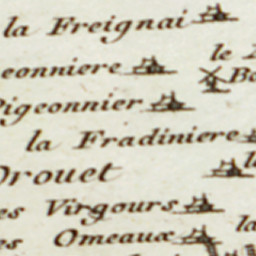 la Freignai
le
eonniere
Pigeonnier
la Fradiniere
Drouet
es Virgours
la
es Omeaux